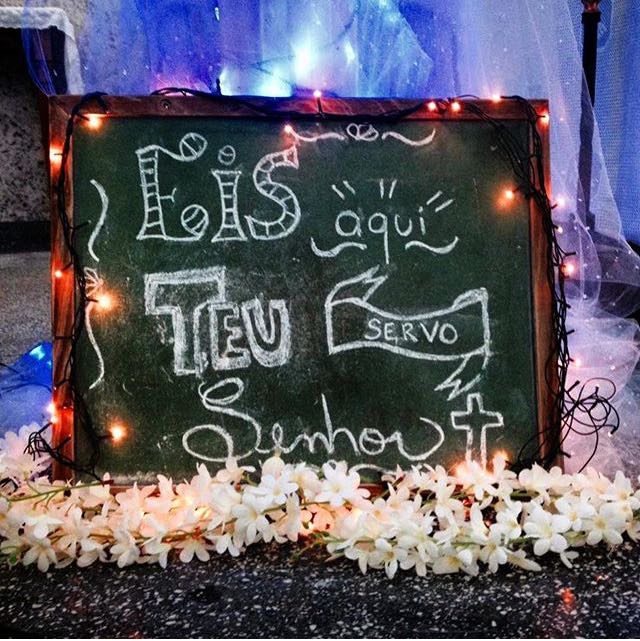 Eis aqui
TEU SERVO
Senhor